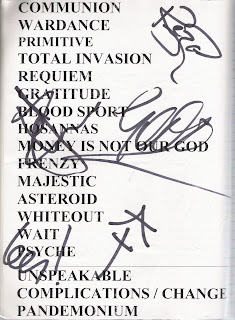 COMMUNION
WARDANCE
PRIMITIVE
TOTAL INVASION
REQUIEM
GRATITUDE
BLOOD SPORT
HOSANNAS
MONEY IS NOT OUR GOD
FRENZY
MAJESTIC
ASTEROID
WHITEOUT
WAIT
PSYCHE
UNSPEAKABLE
COMPLICATIONS / CHANGE
PANDEMONIUM